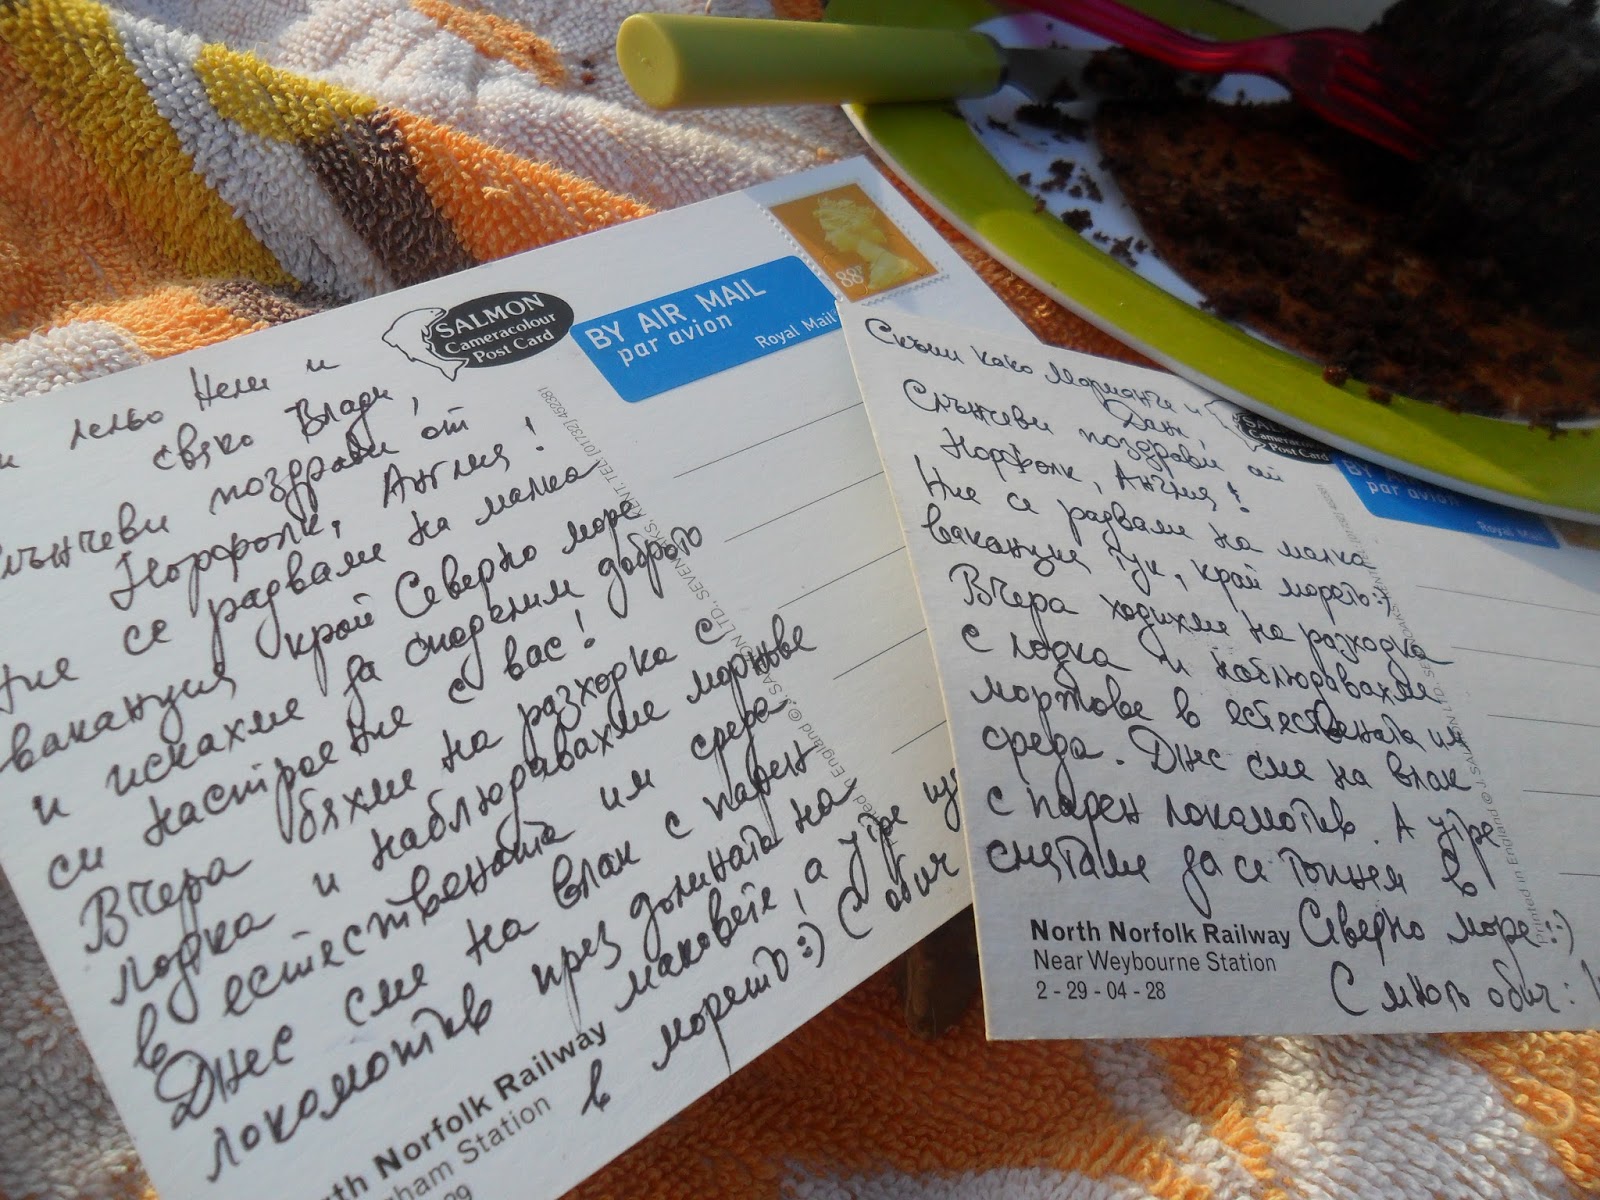 SALMON
Cameracolour
Post Card
BY AIR MAIL
par avion
Royal Mail
88P
лельо Нели и
свако Влади,
Слънчеви поздрави от
Норфолк, Англия!
Ние се радваме на малка
ваканция край Северно море
и искахме да споделим доброто
си настроение с вас!
Вчера бяхме на разходка с
лодка и наблюдавахме моржове
в естествената им среда
Днес сме на влак с парен
локомотив през долината на
маковете, а утре
в морето :) С обич
North Norfolk Railway
Station
© J. SALMON LTD., SEVENOAKS, KENT. TEL: (01732) 452381
England
Скъпи како Марианче и
Дани,
Слънчеви поздрави от
Норфолк, Англия!
Ние се радваме на малка
ваканция тук, край морето:)
Вчера ходихме на разходка
с лодка и наблюдавахме
моржове в естествената им
среда. Днес сме на влак
с парен локомотив. А утре
смятаме да се топнем в
Северно море :)
С много обич:
SALMON
Cameracolour
Post Card
BY AIR MAIL
par avion
Royal Mail
North Norfolk Railway
Near Weybourne Station
2 - 29 - 04 - 28
Printed in England © J. SALMON LTD., SEVENOAKS, KENT